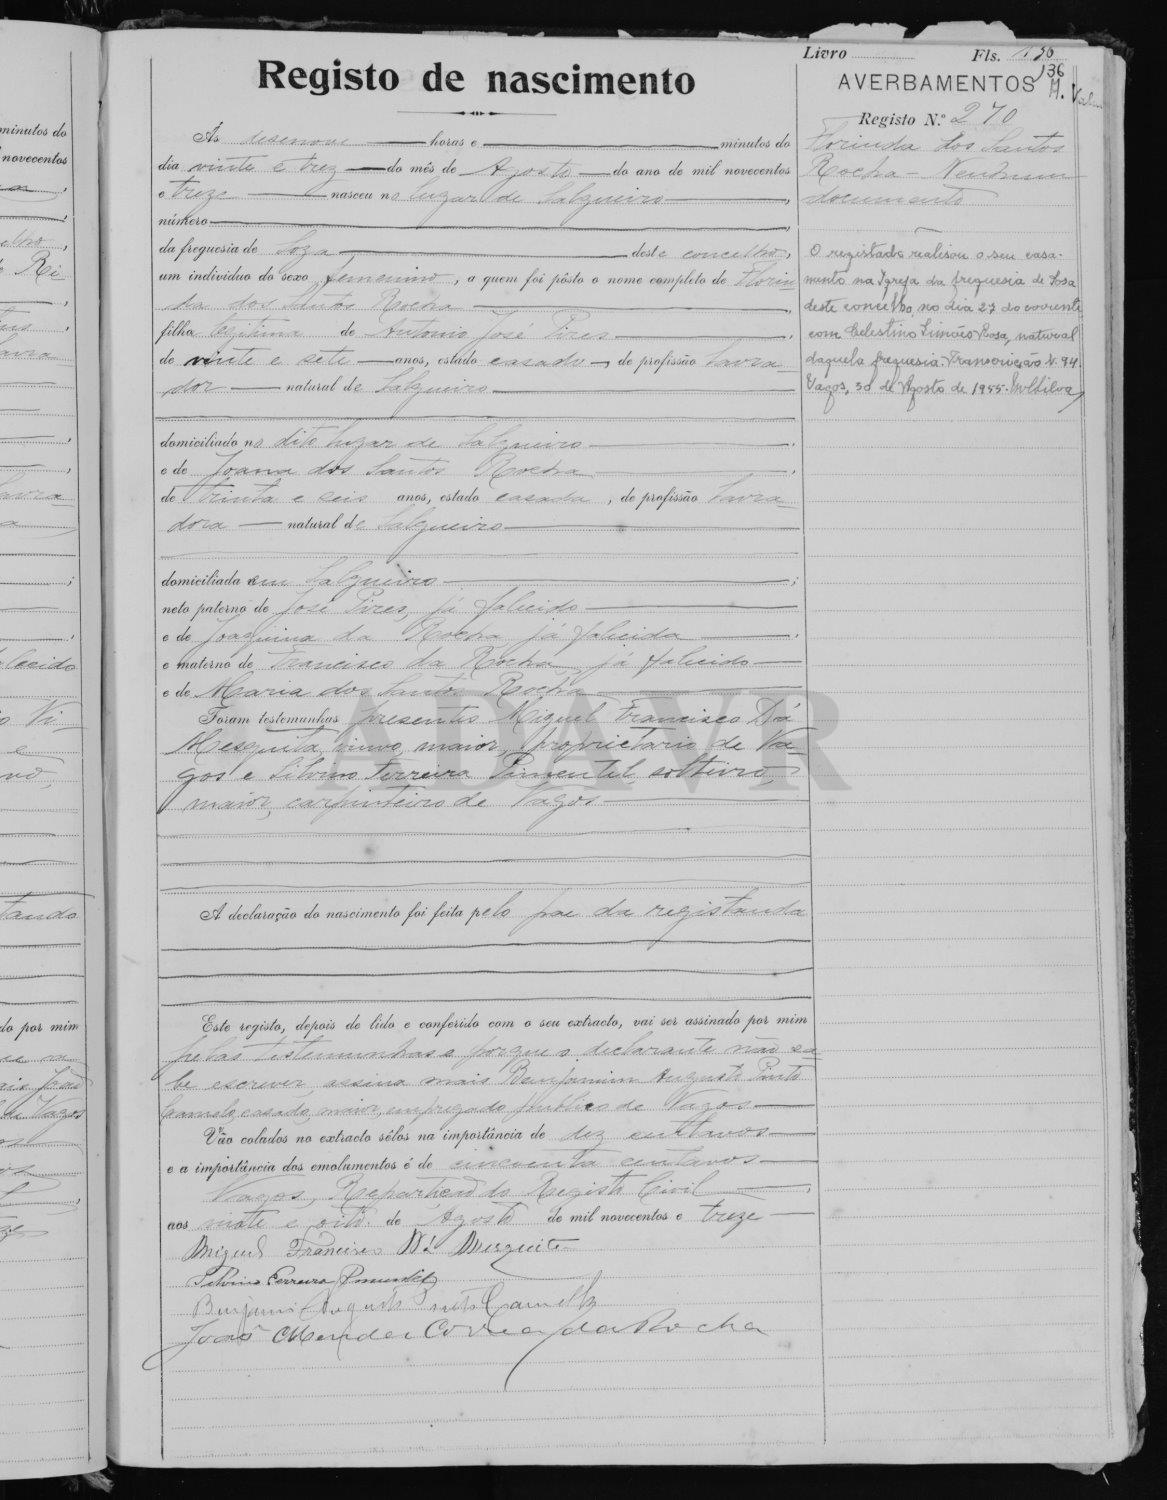 Livro Fls. 136
136
Registo de nascimento
AVERBAMENTOS
Registo N.º 270
Florinda dos Santos
Rocha - Nenhum
documento
O registado realisou o seu casa-
mento na Igreja da freguesia de Sosa
deste concelho, no dia 27 do corrente
com Celestino Simões Rosa, natural
daquela freguesia. Transcrição N. 94.
Vagos, 30 de Agosto de 1955.
Ás desenove horas e minutos do
dia vinte e trez do mês de Agosto do ano de mil novecentos
e treze nasceu no lugar de Salgueiro,
número
da freguesia de Soza deste concelho,
um individuo do sexo femenino, a quem foi pôsto o nome completo de Florin
da dos Santos Rocha
filha legitima de Antonio José Pires,
de vinte e sete anos, estado casado, de profissão Lavra
dor natural de Salgueiro
domiciliado no dito lugar de Salgueiro,
e de Joana dos Santos Rocha,
de trinta e seis anos, estado casada, de profissão Lavra
dora natural de Salgueiro
domiciliada em Salgueiro;
neto paterno de José Pires, já falicido
e de Joaquina da Rocha já falicida,
e materno de Francisco da Rocha, já falicido
e de Maria dos Santos Rocha
Foram testemunhas presentes Miguel Francisco D'á
Mesquita, viuvo, maior, proprietario de Va-
gos e Silvino Ferreira Pimentel, solteiro,
maior, carpinteiro de Vagos
A declaração do nascimento foi feita pelo pae da registanda
Este registo, depois de lido e conferido com o seu extracto, vai ser assinado por mim
pelas testemunhas e porque o declarante não sa-
be escrever assina mais Benjamim Augusto Pinto
Camelo, casado, maior, empregado publico de Vagos
Vão colados no extracto sêlos na importância de dez centavos
e a importância dos emolumentos é de cincoenta centavos
Vagos, Repartição do Registo Civil,
aos vinte e oito de Agosto de mil novecentos e treze
Miguel Francisco D'á Mesquita
Silvino Ferreira Pimentel
Benjamim Augusto Pinto Camello
João Mendes Correa da Rocha
ADAVR
minutos do
novecentos
do por mim